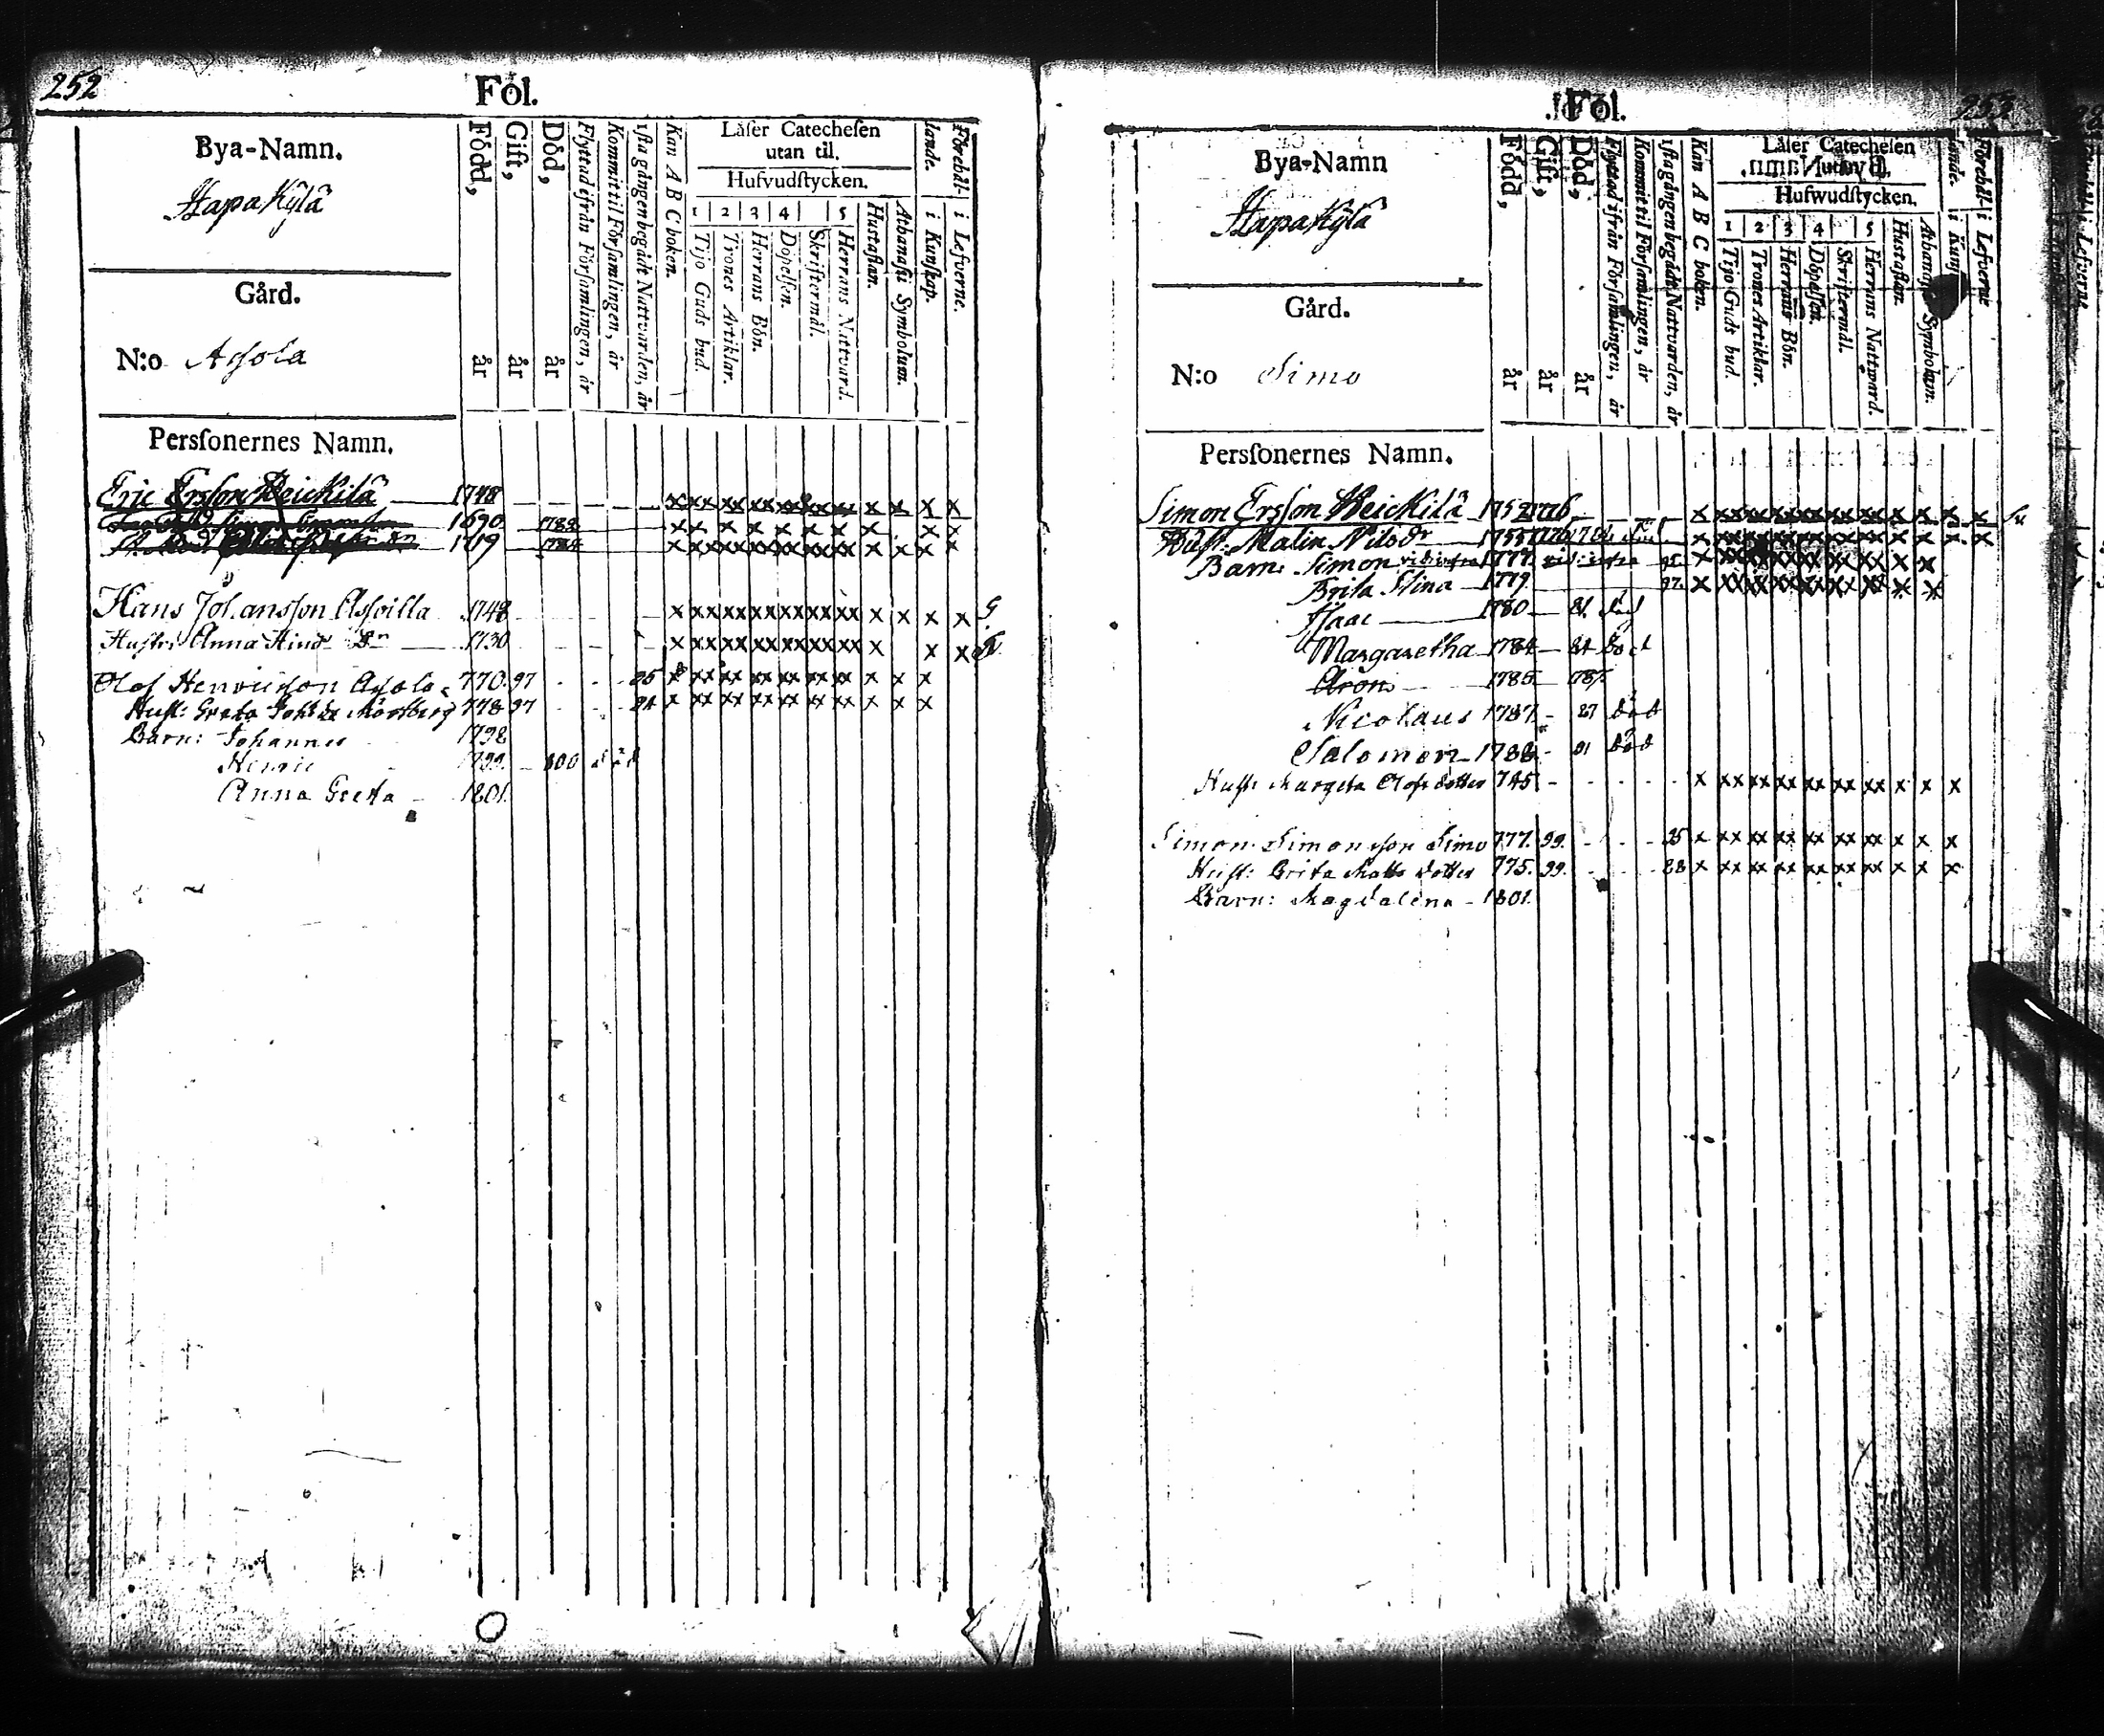 252
Föl.
Bya-Namn.
Hapakylä
Gård.
N:o Assola
Personernes Namn.
Född, år
Gift, år
Död, år
Flyttad ifrån Församlingen, år
Kommit til Församlingen, år
ista gången begådt Nattvarden, år
Kan A B C boken.
Läser Catechesen
utan til.
Hufvudstycken.
1 2 3 4 5
Tijo Guds bud.
Trones Artiklar.
Herrans Bön.
Döpelsen.
Skriftermål.
Herrans Nattvard.
Hustaflan.
Athanasii Symbolum.
Förehål-
lande.
i Kunskap.
i Lefverne.
Eric Ersson Heickilä 1748 x xx xx xx xx xx xx x x x x
1690 1789
Hans Johansson 1748 x xx xx xx xx xx xx x x x x
Hustr: Anna Hind Dr 1730 x xx xx xx xx xx xx x x x
Olof Henricsson Assola 770. 97 x xx xx xx xx xx xx x x x
Hust: Greta 778 97 x xx xx xx xx xx xx x x x
Barn: Johannes 1798
Henric 1799. 800 död
Anna Greta 1801.
253
Föl.
Bya-Namn
Hapakylä
Gård.
N:o Simo
Personernes Namn.
Född, år
Gift, år
Död, år
Flyttad ifrån Församlingen, år
Kommit til Församlingen, år
ista gången begådt Nattvarden, år
Kan A B C boken.
Läser Catechesen
Hufwudstycken.
1 2 3 4 5
Tijo Guds bud.
Trones Artiklar.
Herrans Bön.
Döpelsen.
Skriftermål.
Herrans Nattward.
Hustaflan.
Symbolum.
Förehål-
lande.
i Lefverne
Simon Ersson Heickilä 1752 x xx xx xx xx xx xx x x x x
Hust: Malin Nilsdr 1755 x xx xx xx xx xx xx x x x x
Barn: Simon 1777. x xx xx xx xx xx xx x x
Brita Stina 1779. x xx xx xx xx xx xx x x
Isaac 1780 81. död
Margaretha 1784 84 död
Aron 1785 787.
Nicolaus 1787. 87 död
Salomon 1788 91 död
Hust: Margeta Olofs dotter 745. x xx xx xx xx xx xx x x x
Simon Simonsson Simo 777. 99. 25 x xx xx xx xx xx xx x x x
Hust: Brita Matts dotter 775. 99. 28 x xx xx xx xx xx xx x x x
Barn: Magdalena 1801.